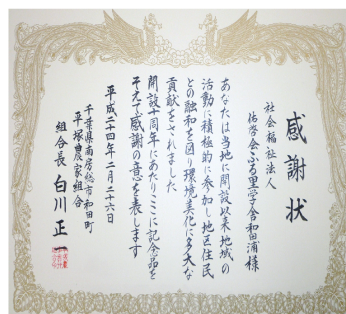 感謝状
社会福祉法人
佑啓会ふる里学舎和田浦様
あなたは当地に開設以来地域の
活動に積極的に参加し地区住民
との融和を図り環境美化に多大な
貢献をされました
開設十周年にあたりここに記念品を
そえて感謝の意を表します
平成二十四年二月二十六日
千葉県南房総市和田町
平塚農家組合
組合長 白川 正